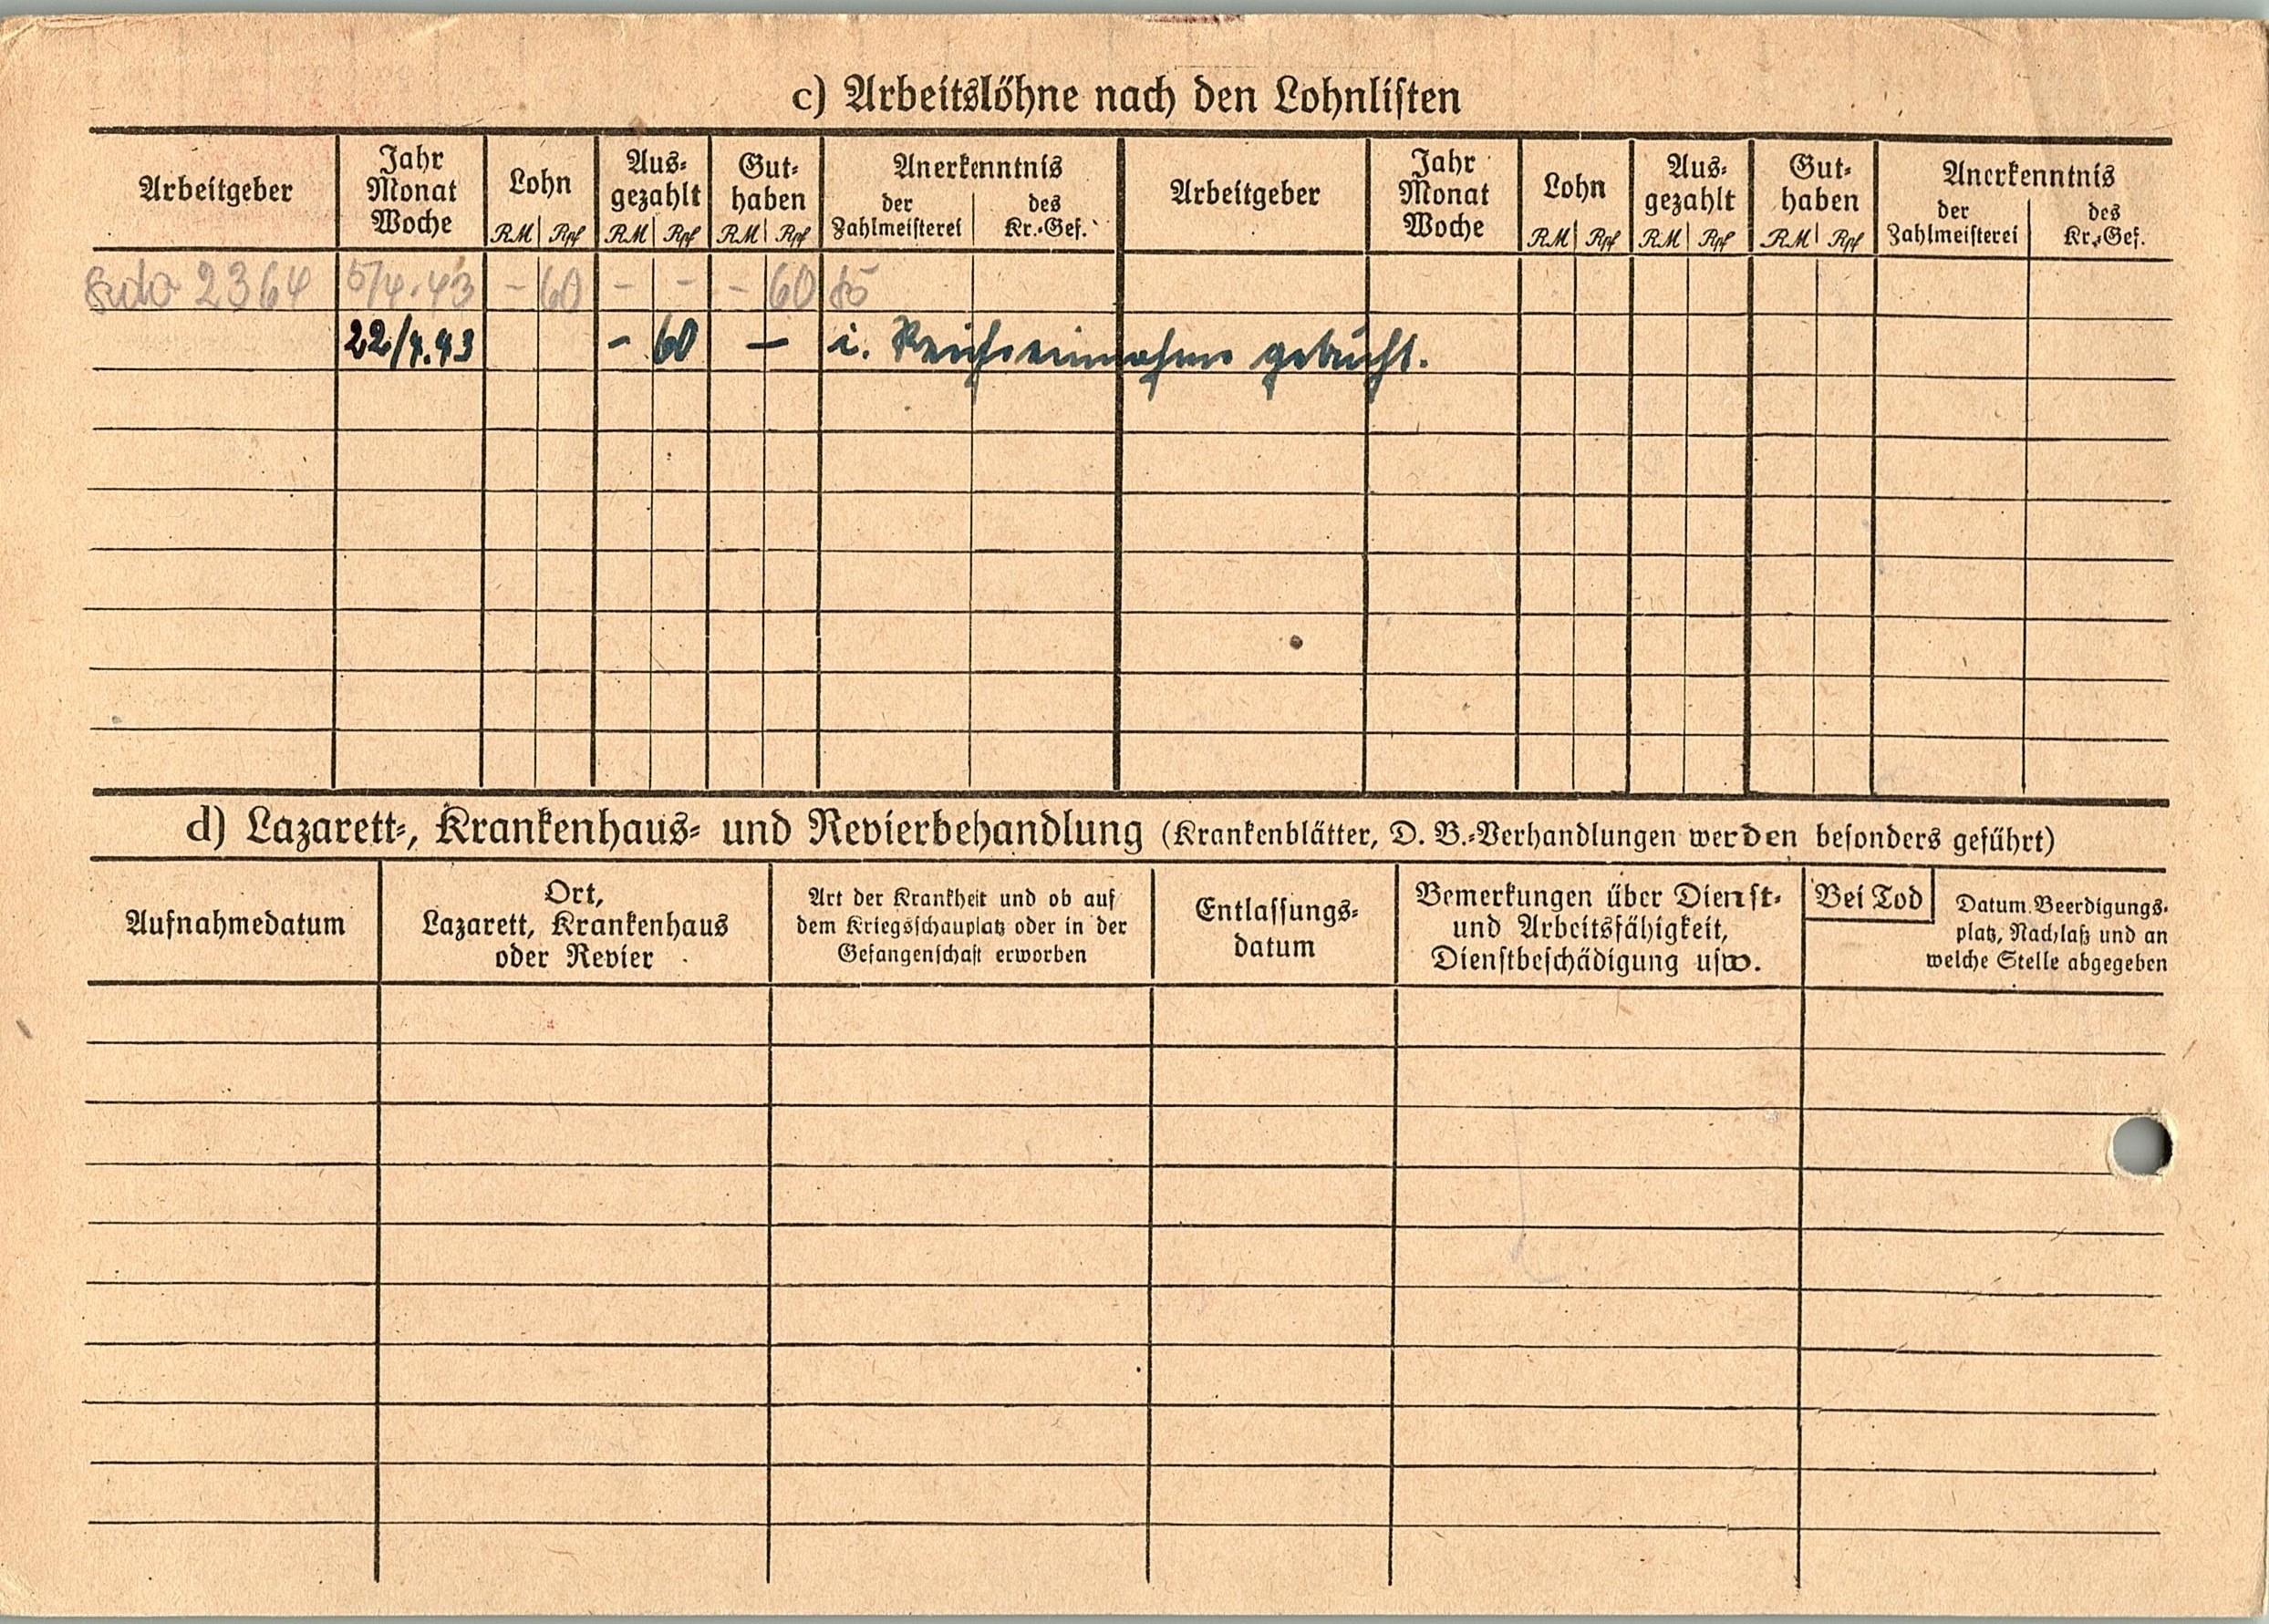 c) Arbeitslöhne nach den Lohnlisten
Arbeitgeber
Jahr
Monat
Woche
Lohn
RM Rpf
Aus-
gezahlt
RM Rpf
Gut-
haben
RM Rpf
Anerkenntnis
der
Zahlmeisterei
des
Kr.-Gef.
Arbeitgeber
Jahr
Monat
Woche
Lohn
RM Rpf
Aus-
gezahlt
RM Rpf
Gut-
haben
RM Rpf
Anerkenntnis
der
Zahlmeisterei
des
Kr.-Gef.
Kdo 2364 5/4.43 - 60 - - - 60
22/4.43 - 60 - i. Reichseinnahme gebucht.
d) Lazarett-, Krankenhaus- und Revierbehandlung (Krankenblätter, D. B.-Verhandlungen werden besonders geführt)
Aufnahmedatum
Ort,
Lazarett, Krankenhaus
oder Revier
Art der Krankheit und ob auf
dem Kriegsschauplatz oder in der
Gefangenschaft erworben
Entlassungs-
datum
Bemerkungen über Dienst-
und Arbeitsfähigkeit,
Dienstbeschädigung usw.
Bei Tod
Datum, Beerdigungs-
platz, Nachlaß und an
welche Stelle abgegeben